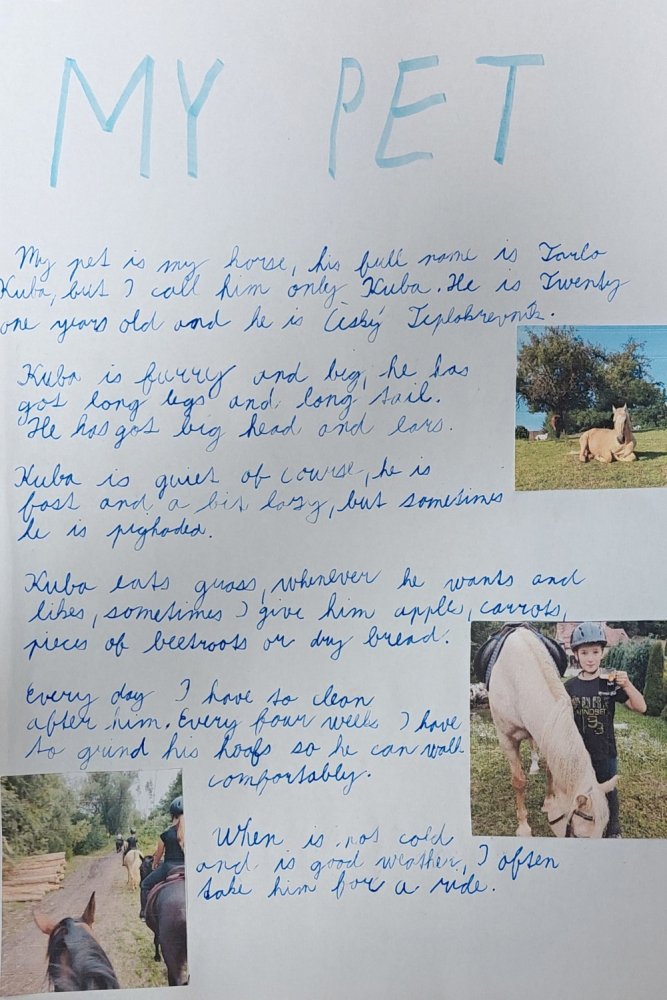 MY PET
My pet is my horse, his full name is Tarlo
Kuba, but I call him only Kuba. He is Twenty
one years old and he is Český Teplokrevník.
Kuba is furry and big, he has
got long legs and long tail.
He has got big head and ears.
Kuba is quiet of course, he is
fast and a bit lazy, but sometimes
he is pighaded.
Kuba eats grass, whenever he wants and
likes, sometimes I give him apples, carrots,
pieces of beetroots or dry bread.
Every day I have to clean
after him. Every four weeks I have
to grind his hoofs so he can walk
comfortably.
When is not cold
and is good weather, I often
take him for a ride.
MINDSET